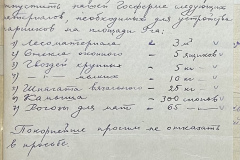 отпустить нашей Госферме следующих
материалов, необходимых для устройства
парников на площади 2га:
1) Лесоматериала — 3 м³ "
2) Стекла оконного — 5 ящиков "
3) Гвоздей крупных — 5 кг "
4) — " — мелких — 10 кг "
5) Шпагата вязального — 25 кг "
6) Камыша — 300 снопов "
7) Рогожи для мат — 65 — "
Покорнейше просим не отказать
в просьбе.